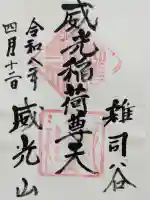 雑司谷
威光稲荷尊天
威光山
令和六年
四月十二日